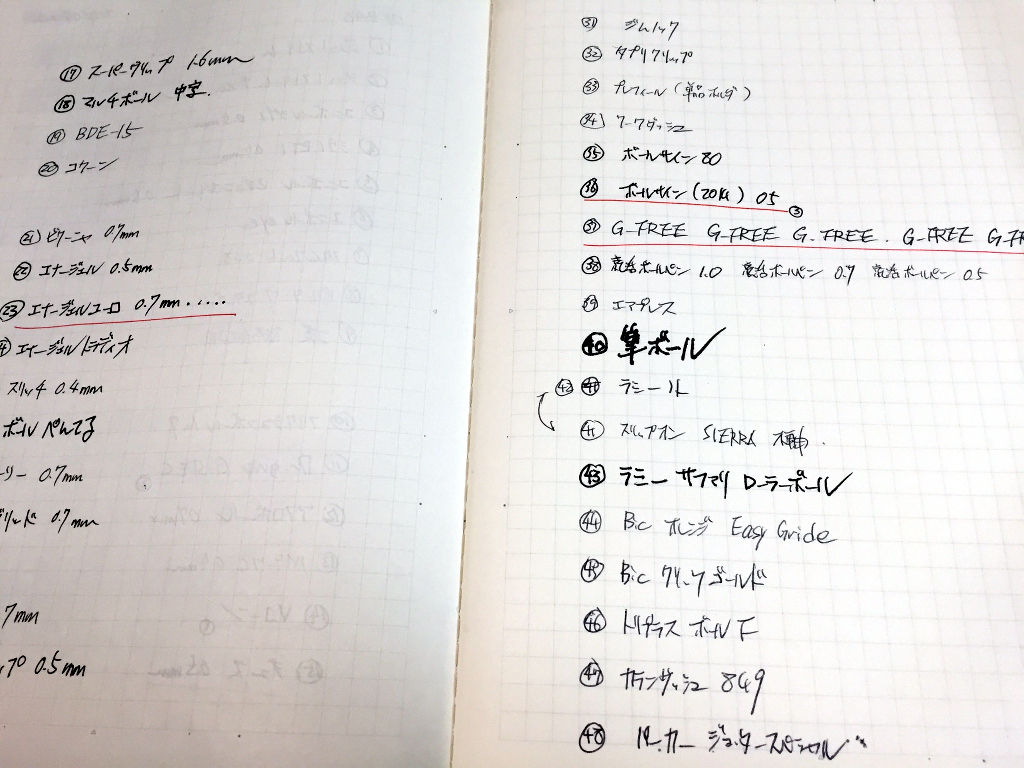 ⑰ スーパーグリップ 1.6mm
⑱ マルチボール 中字.
⑲ BDE-15
⑳ コクーン
㉑ ピクーニャ 0.7mm
㉒ エナージェル 0.5mm
㉓ エナージェルユーロ 0.7mm.....
エナージェルトラディオ
スリッチ 0.4mm
ボールぺんてる
リー 0.7mm
リッド 0.7mm
7mm
プ 0.5mm
㉛ ジムノック
㉜ タプリクリップ
㉝ プレフィール (単品ホルダ)
㉞ ワークダッシュ
㉟ ボールサイン80
㊱ ボールサイン(2014) 05 ③
㊲ G-FREE G-FREE G-FREE. G-FREE G-FR
㊳ 就活ボールペン 1.0 就活ボールペン 0.7 就活ボールペン 0.5
㊴ エアプレス
㊵ 筆ボール
㊷ ラミー
㊶ スリップオン SIERRA 木軸.
㊸ ラミー サファリ ローラーボール
㊹ Bic オレンジ Easy Gride
㊺ Bic クリックゴールド
㊻ トリプラス ボール F
㊼ カランダッシュ 849
㊽ パーカー ジョッタースペシャル